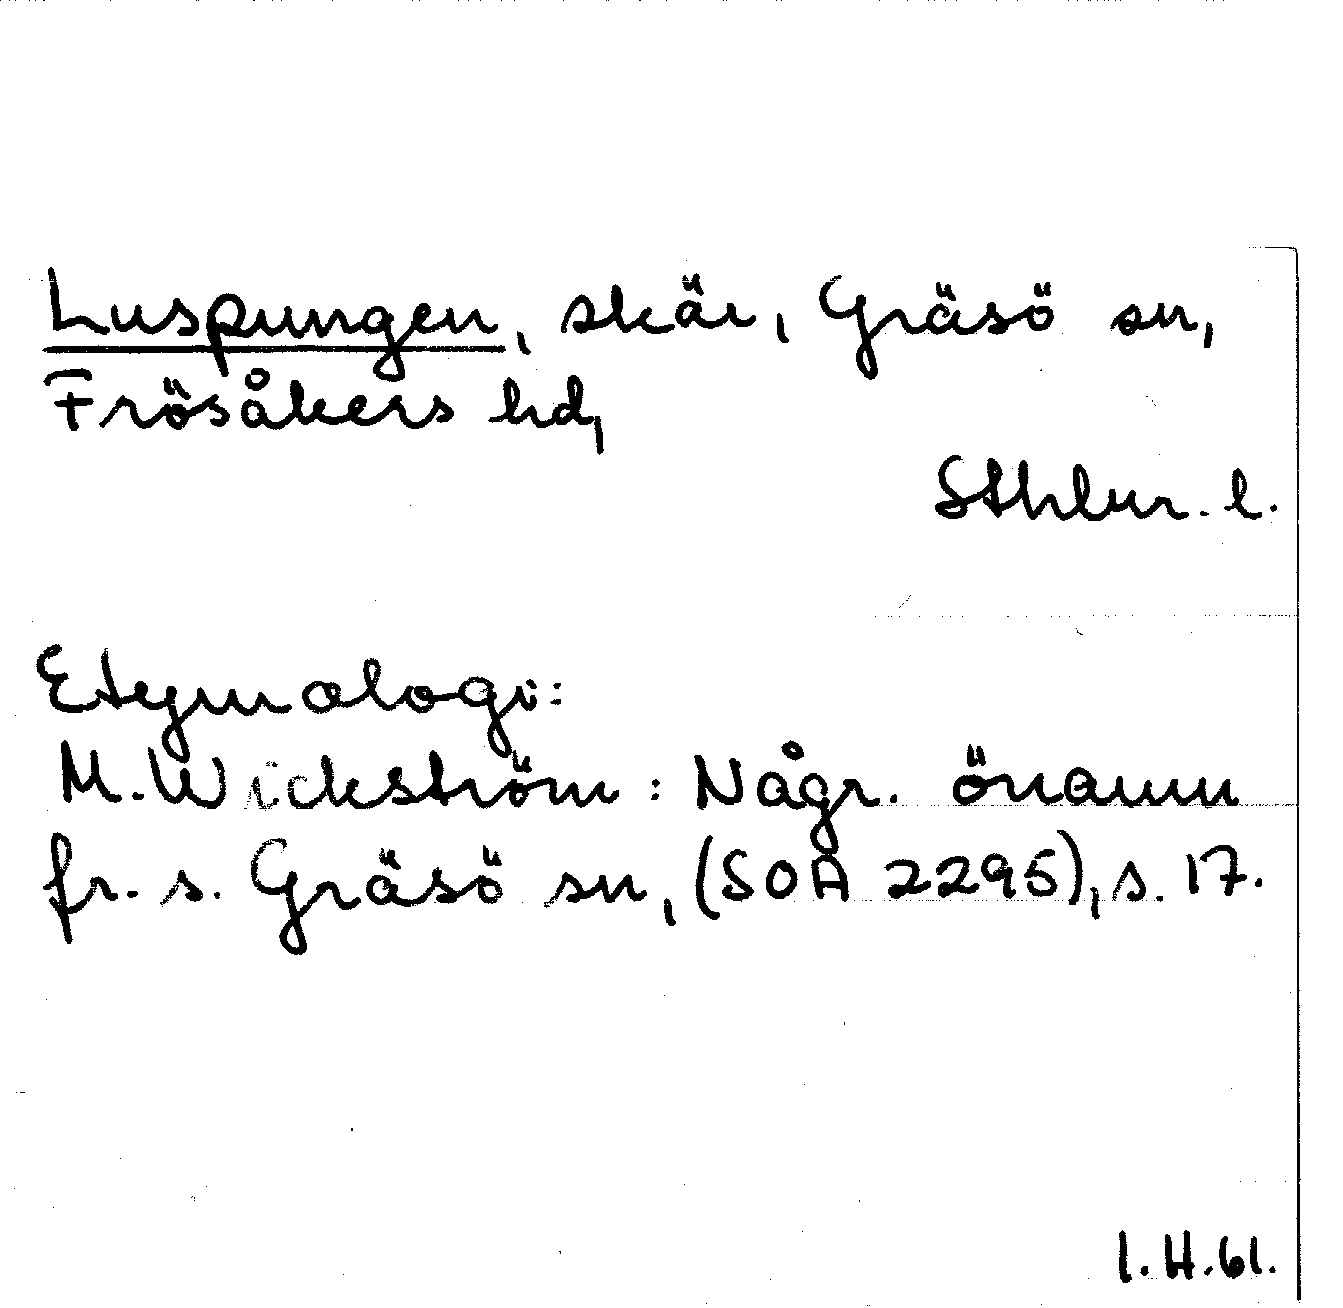 Luspungen, skär, Gräsö sn,
Frösåkers hd,
Sthlm. l.
Etymologi:
M. Wickström: Någr. önamn
fr. s. Gräsö sn, (SOA 2295), s. 17.
I.H.61.